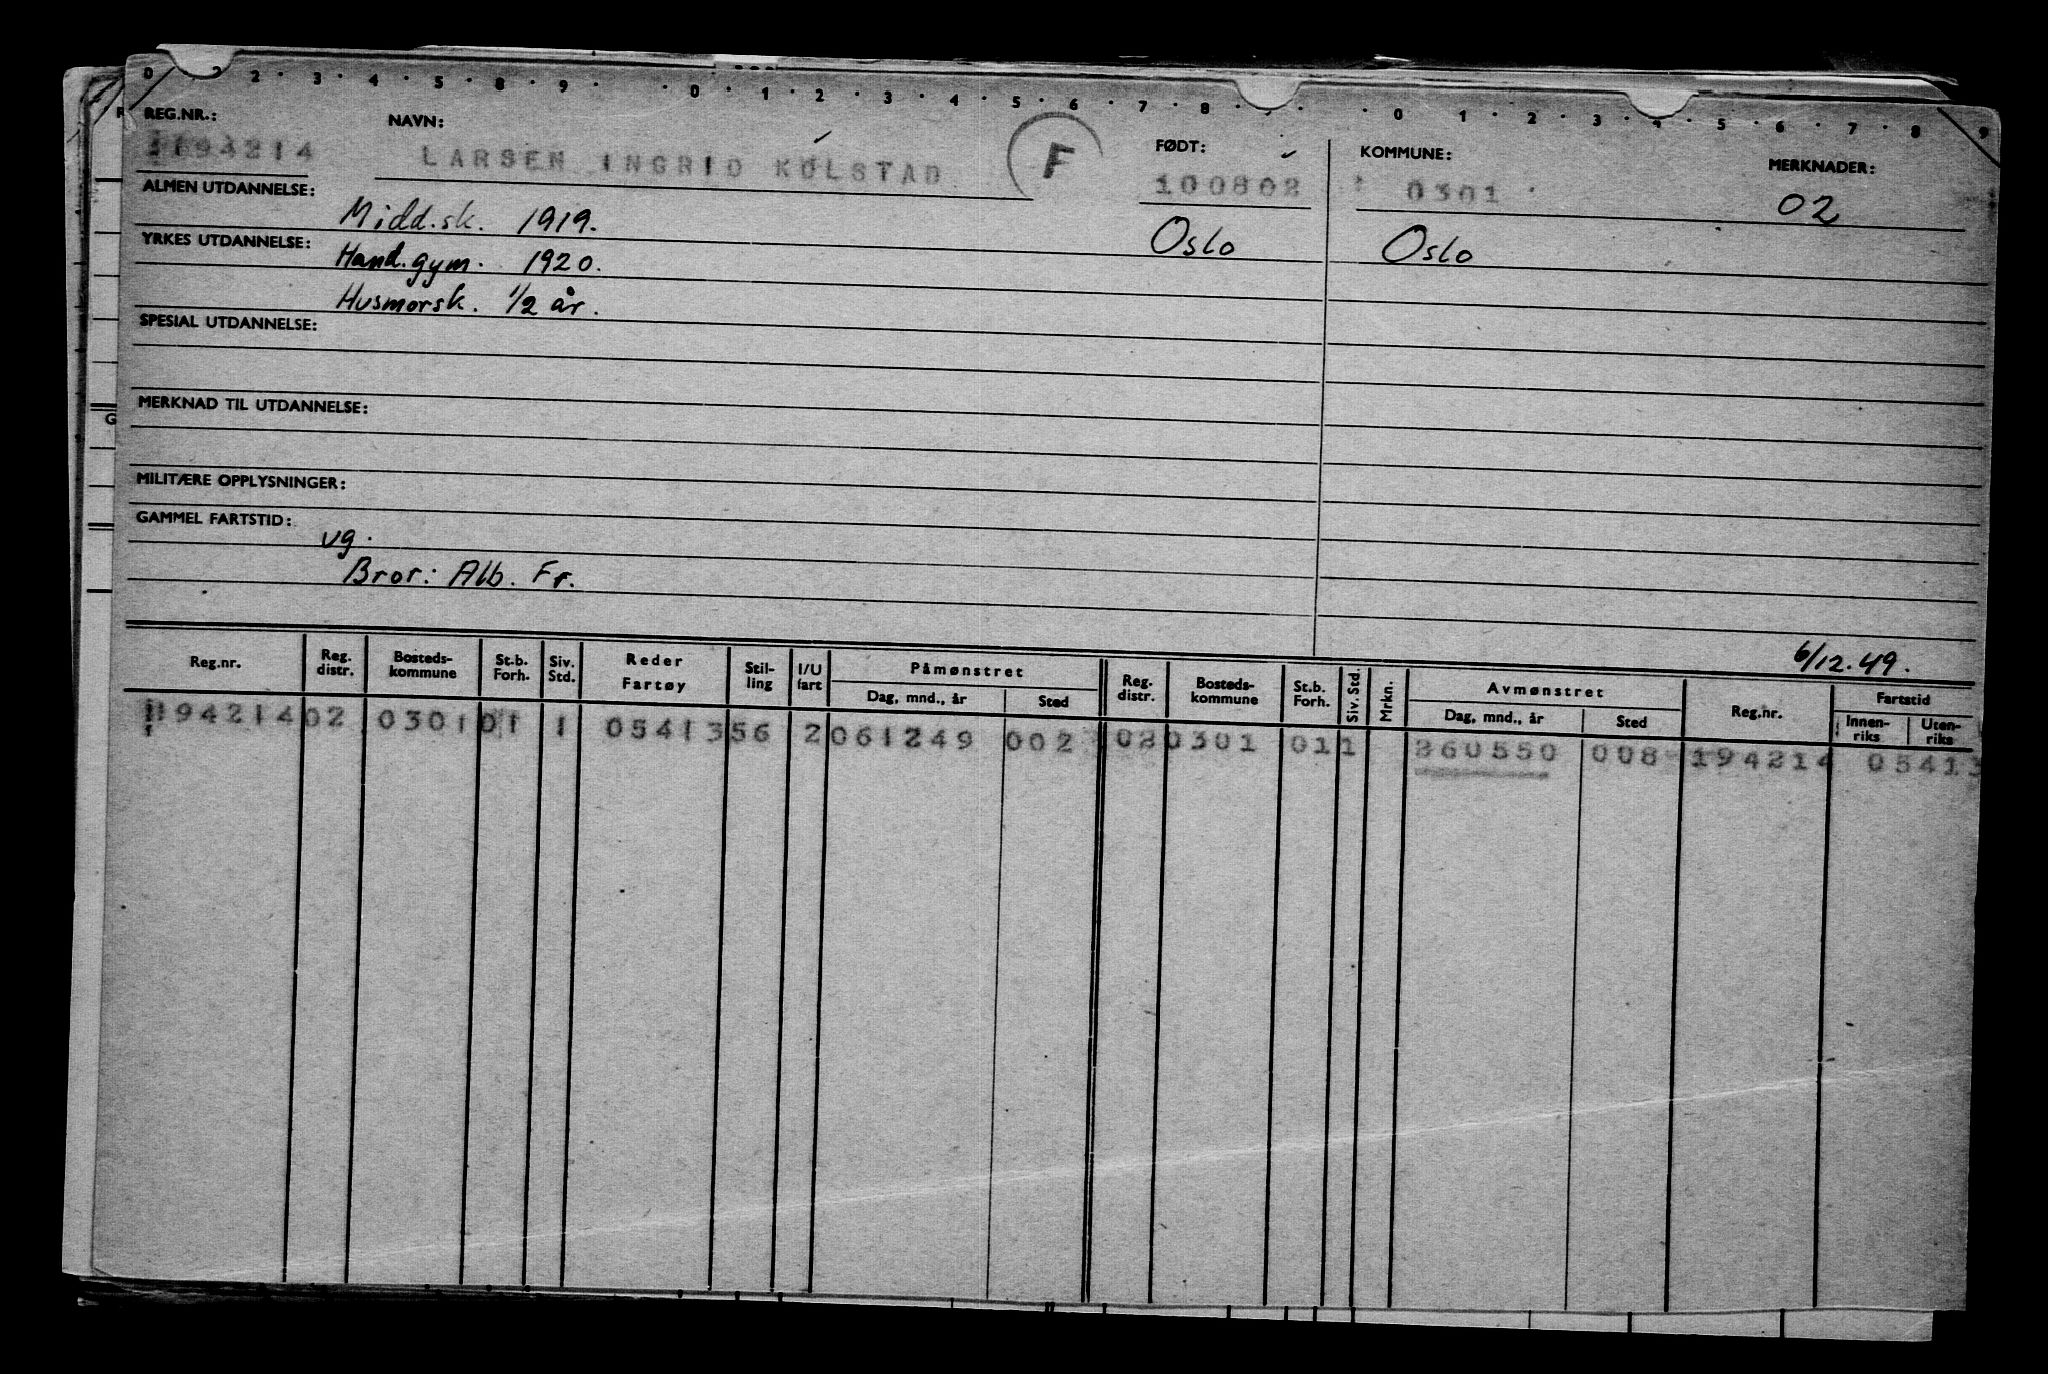 0 2 · 3 · 4 · 5 · 8 · 9 · · 0 · 1 · 2 · 3 · 4 · 5 · 6 · 7 · 8 · · · 0 1 · 2 · 3 · 4 · 5 · 6 · 7 · 8 · 9
REG.NR.: NAVN: FØDT: KOMMUNE: MERKNADER:
194214 LARSEN INGRID KOLSTAD F 100802 0301 02
ALMEN UTDANNELSE: Midd.sk. 1919. Oslo Oslo
YRKES UTDANNELSE: Hand.gym. 1920.
Husmorsk. 1/2 år.
SPESIAL UTDANNELSE:
MERKNAD TIL UTDANNELSE:
G
MILITÆRE OPPLYSNINGER:
GAMMEL FARTSTID:
ug.
Bror: Alb. Fr.
6/12.49.
Reg.nr. Reg. distr. Bosteds-kommune St.b. Forh. Siv. Std. Reder Fartøy Stil-ling I/U fart Påmønstret Dag, mnd., år Sted Reg. distr. Bosteds-kommune St.b. Forh. Siv. Std. Mrkn. Avmønstret Dag, mnd., år Sted Reg.nr. Fartstid Innen-riks Uten-riks
194214 02 0301 01 1 05413 56 2 061249 002 02 0301 01 1 260550 008 194214 05413